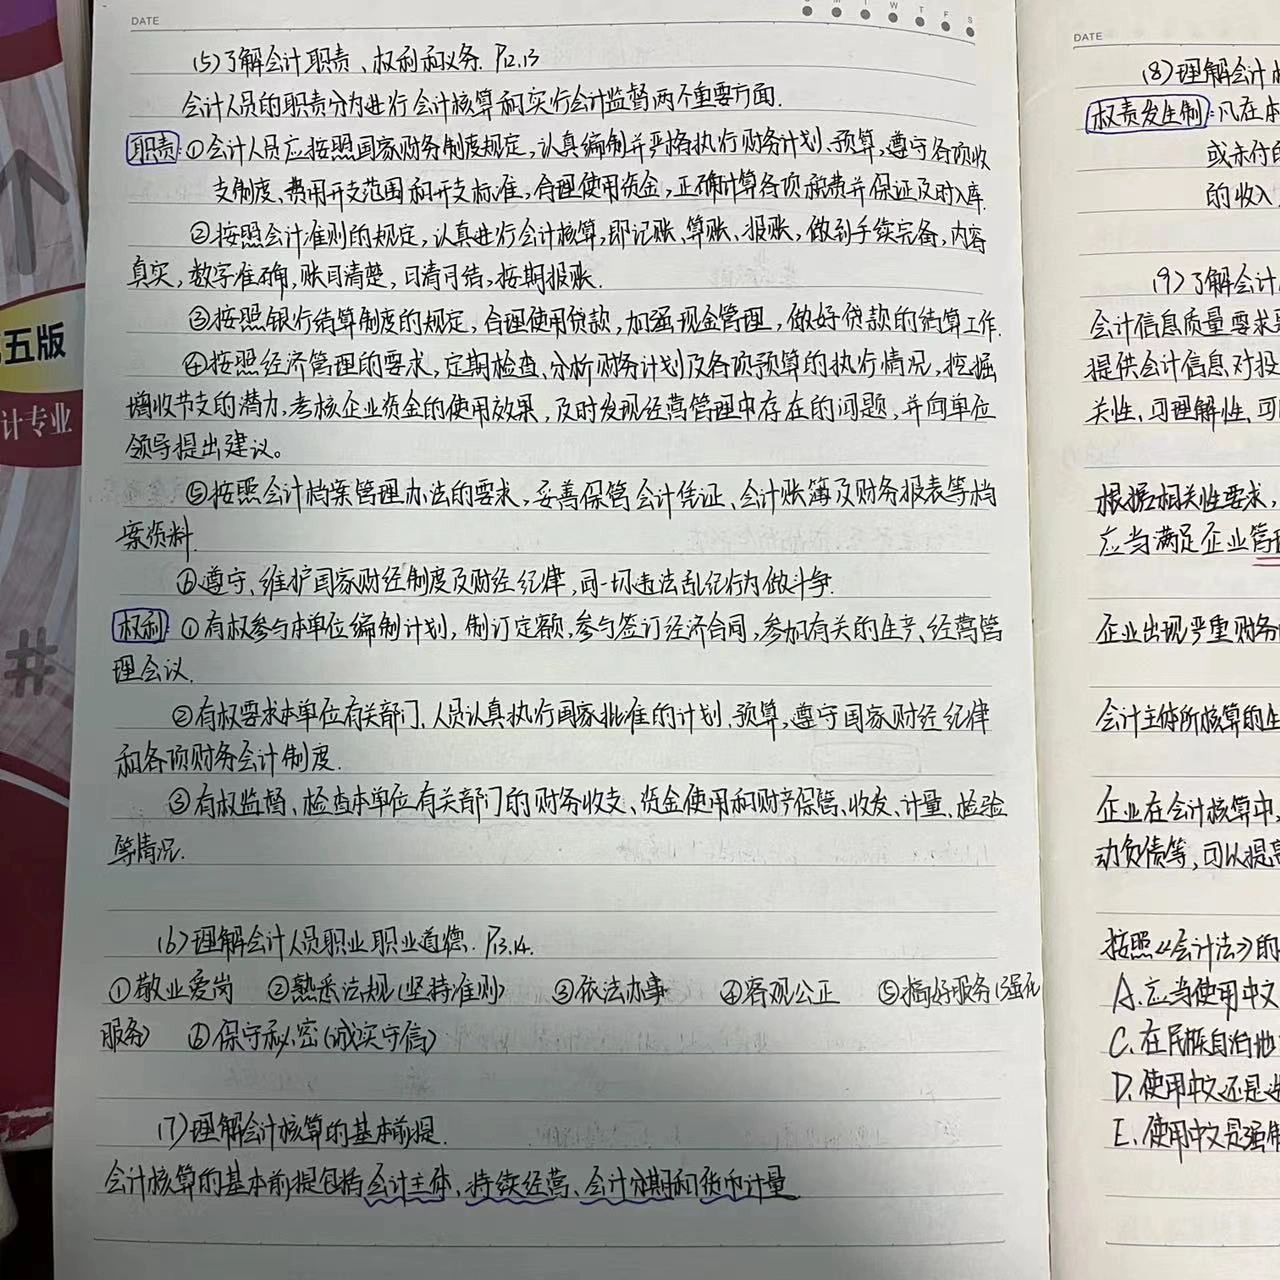 DATE
M T W T F S
(5)了解会计职责、权利和义务. P12.13
会计人员的职责分为进行会计核算和实行会计监督两个重要方面.
职责:①会计人员应按照国家财务制度规定,认真编制并严格执行财务计划、预算,遵守各项收
支制度、费用开支范围和开支标准,合理使用资金,正确计算各项税费并保证及时入库.
②按照会计准则的规定,认真进行会计核算,即记账、算账、报账,做到手续完备,内容
真实,数字准确,账目清楚,日清月结,按期报账.
③按照银行结算制度的规定,合理使用贷款,加强现金管理,做好贷款的结算工作.
④按照经济管理的要求,定期检查、分析财务计划及各项预算的执行情况,挖掘
增收节支的潜力,考核企业资金的使用效果,及时发现经营管理中存在的问题,并向单位
领导提出建议。
⑤按照会计档案管理办法的要求,妥善保管会计凭证、会计账簿及财务报表等档
案资料.
⑥遵守、维护国家财经制度及财经纪律,同一切违法乱纪行为做斗争.
权利:①有权参与本单位编制计划,制订定额,参与签订经济合同,参加有关的生产、经营管
理会议.
②有权要求本单位有关部门、人员认真执行国家批准的计划、预算,遵守国家财经纪律
和各项财务会计制度.
③有权监督、检查本单位有关部门的财务收支、资金使用和财产保管、收发、计量、检验
等情况.
(6)理解会计人员职业职业道德. P13.14.
①敬业爱岗 ②熟悉法规(坚持准则) ③依法办事 ④客观公正 ⑤搞好服务(强化
服务) ⑥保守秘密(诚实守信)
(7)理解会计核算的基本前提.
会计核算的基本前提包括会计主体、持续经营、会计分期和货币计量
DATE
(8)理解会计
权责发生制:凡在本
或未付的
的收入
(9)了解会计
会计信息质量要求
提供会计信息对投
关性、可理解性、可
根据相关性要求,
应当满足企业管理
企业出现严重财务
会计主体所核算的生
企业在会计核算中,
动负债等,可以提高
按照《会计法》的
A.应当使用中文
C.在民族自治地
D.使用中文还是
E.使用中文是强制
五版
计专业
#